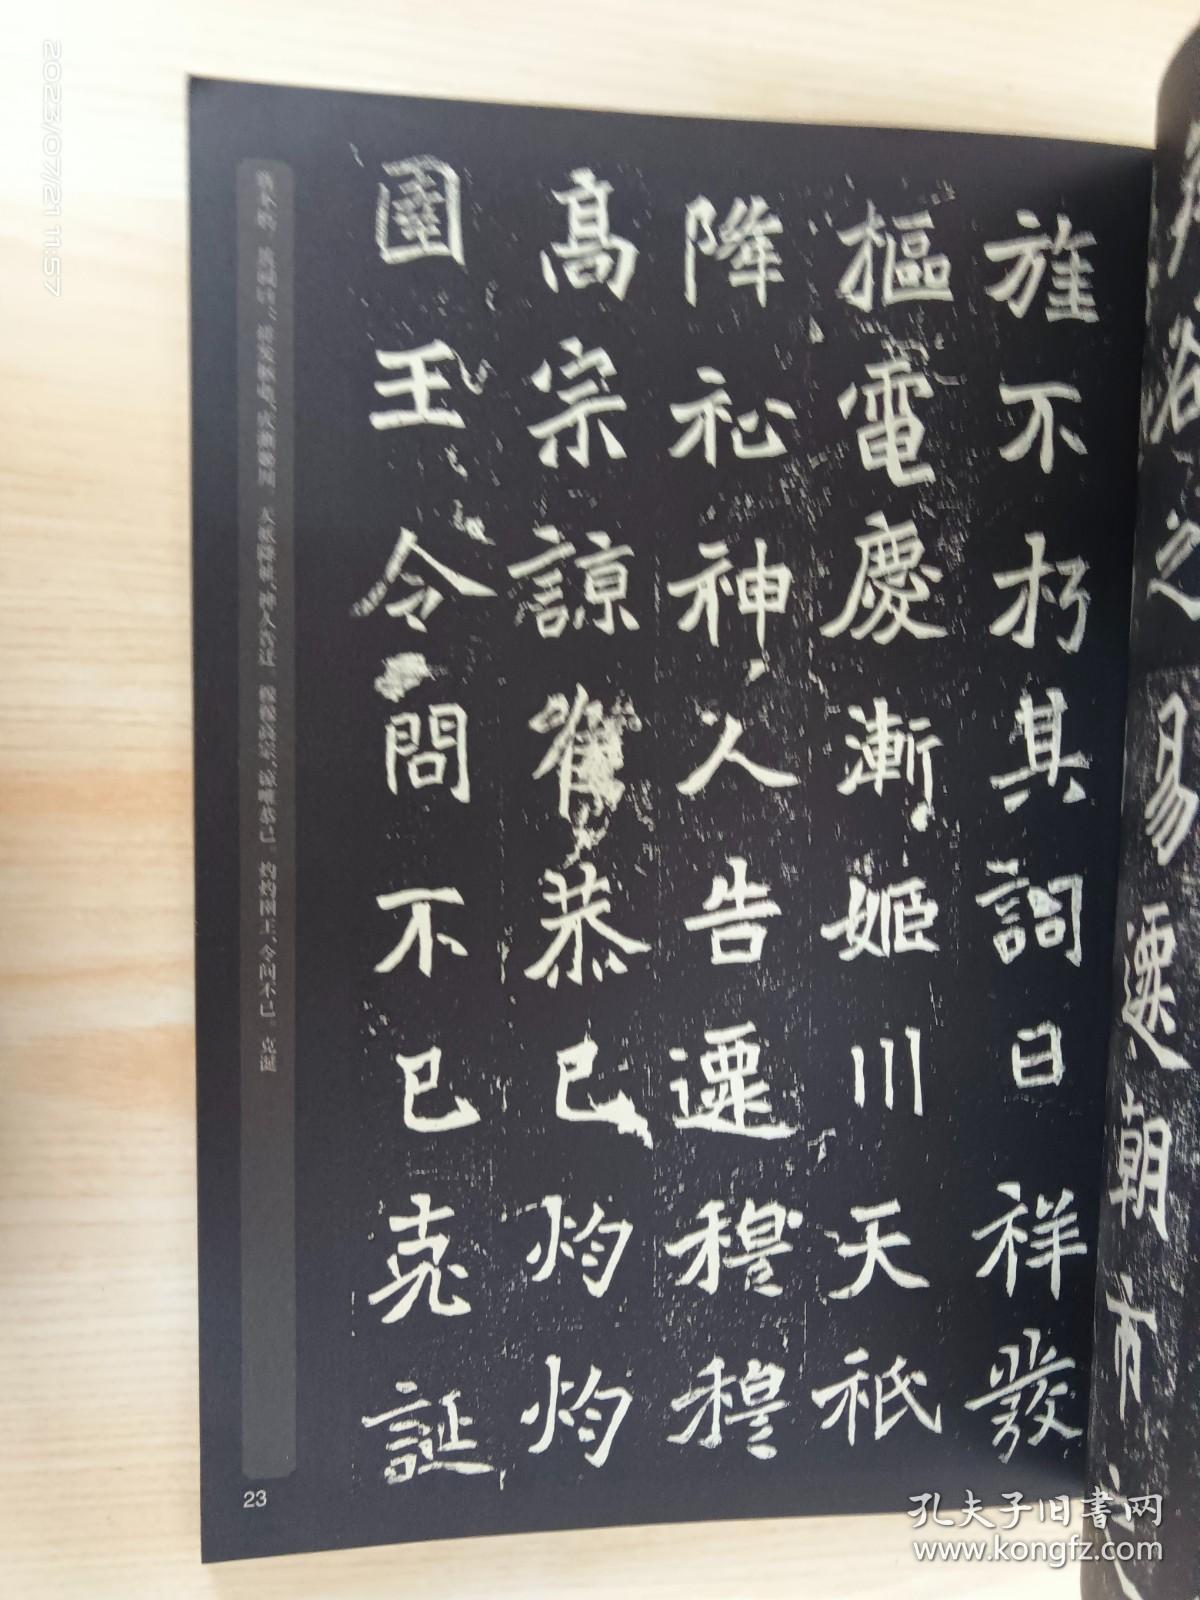 旌不朽其詞曰祥發
樞電慶漸姬川天祇
降祉神人告遷穆穆
高宗諒唯恭己灼灼
圀王令問不已克誕
谷之易遷朝市之
天祇降祉 神人告迁 穆穆高宗 谅唯恭己 灼灼圀王 令问不已。克诞
23
2023/07/21 11:57
孔夫子旧書网
www.kongfz.com